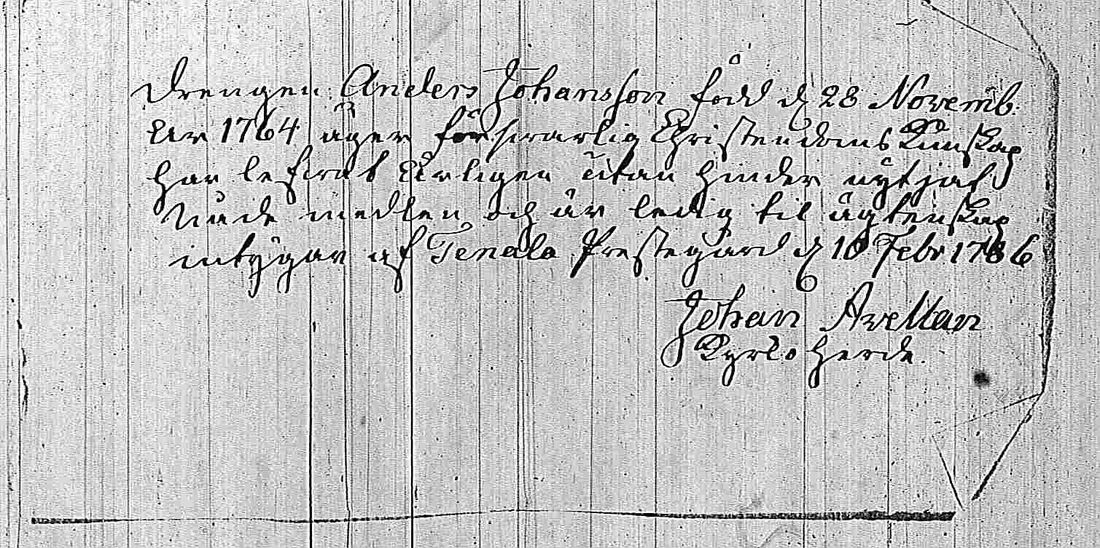 Drengen Anders Johansson född d 28 Novemb.
År 1764 äger försvarlig Christendoms Kunskap
har lefvat Ärligen utan hinder nytjat
Nåde medlen och är ledig til ägtenskap
intygar af Tenala Prestegård d 16 Febr 1786
Johan Avellan
Kyrko herde.